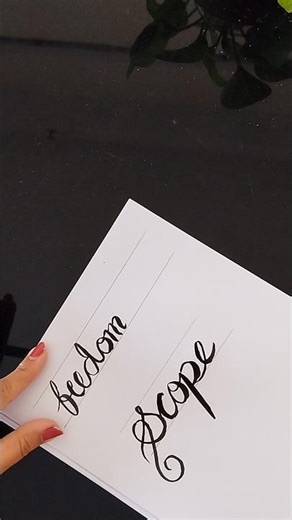 freedom
Scope